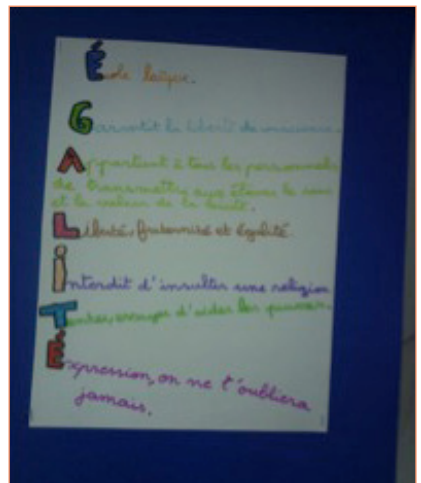 École laïque.
Garantit la liberté de conscience.
Appartient à tous les personnels
de transmettre aux élèves le sens
et la valeur de la laïcité.
Liberté, fraternité et égalité.
Interdit d'insulter une religion
Tenter, essayer d'aider les pauvres.
Expression, on ne t'oubliera
jamais.